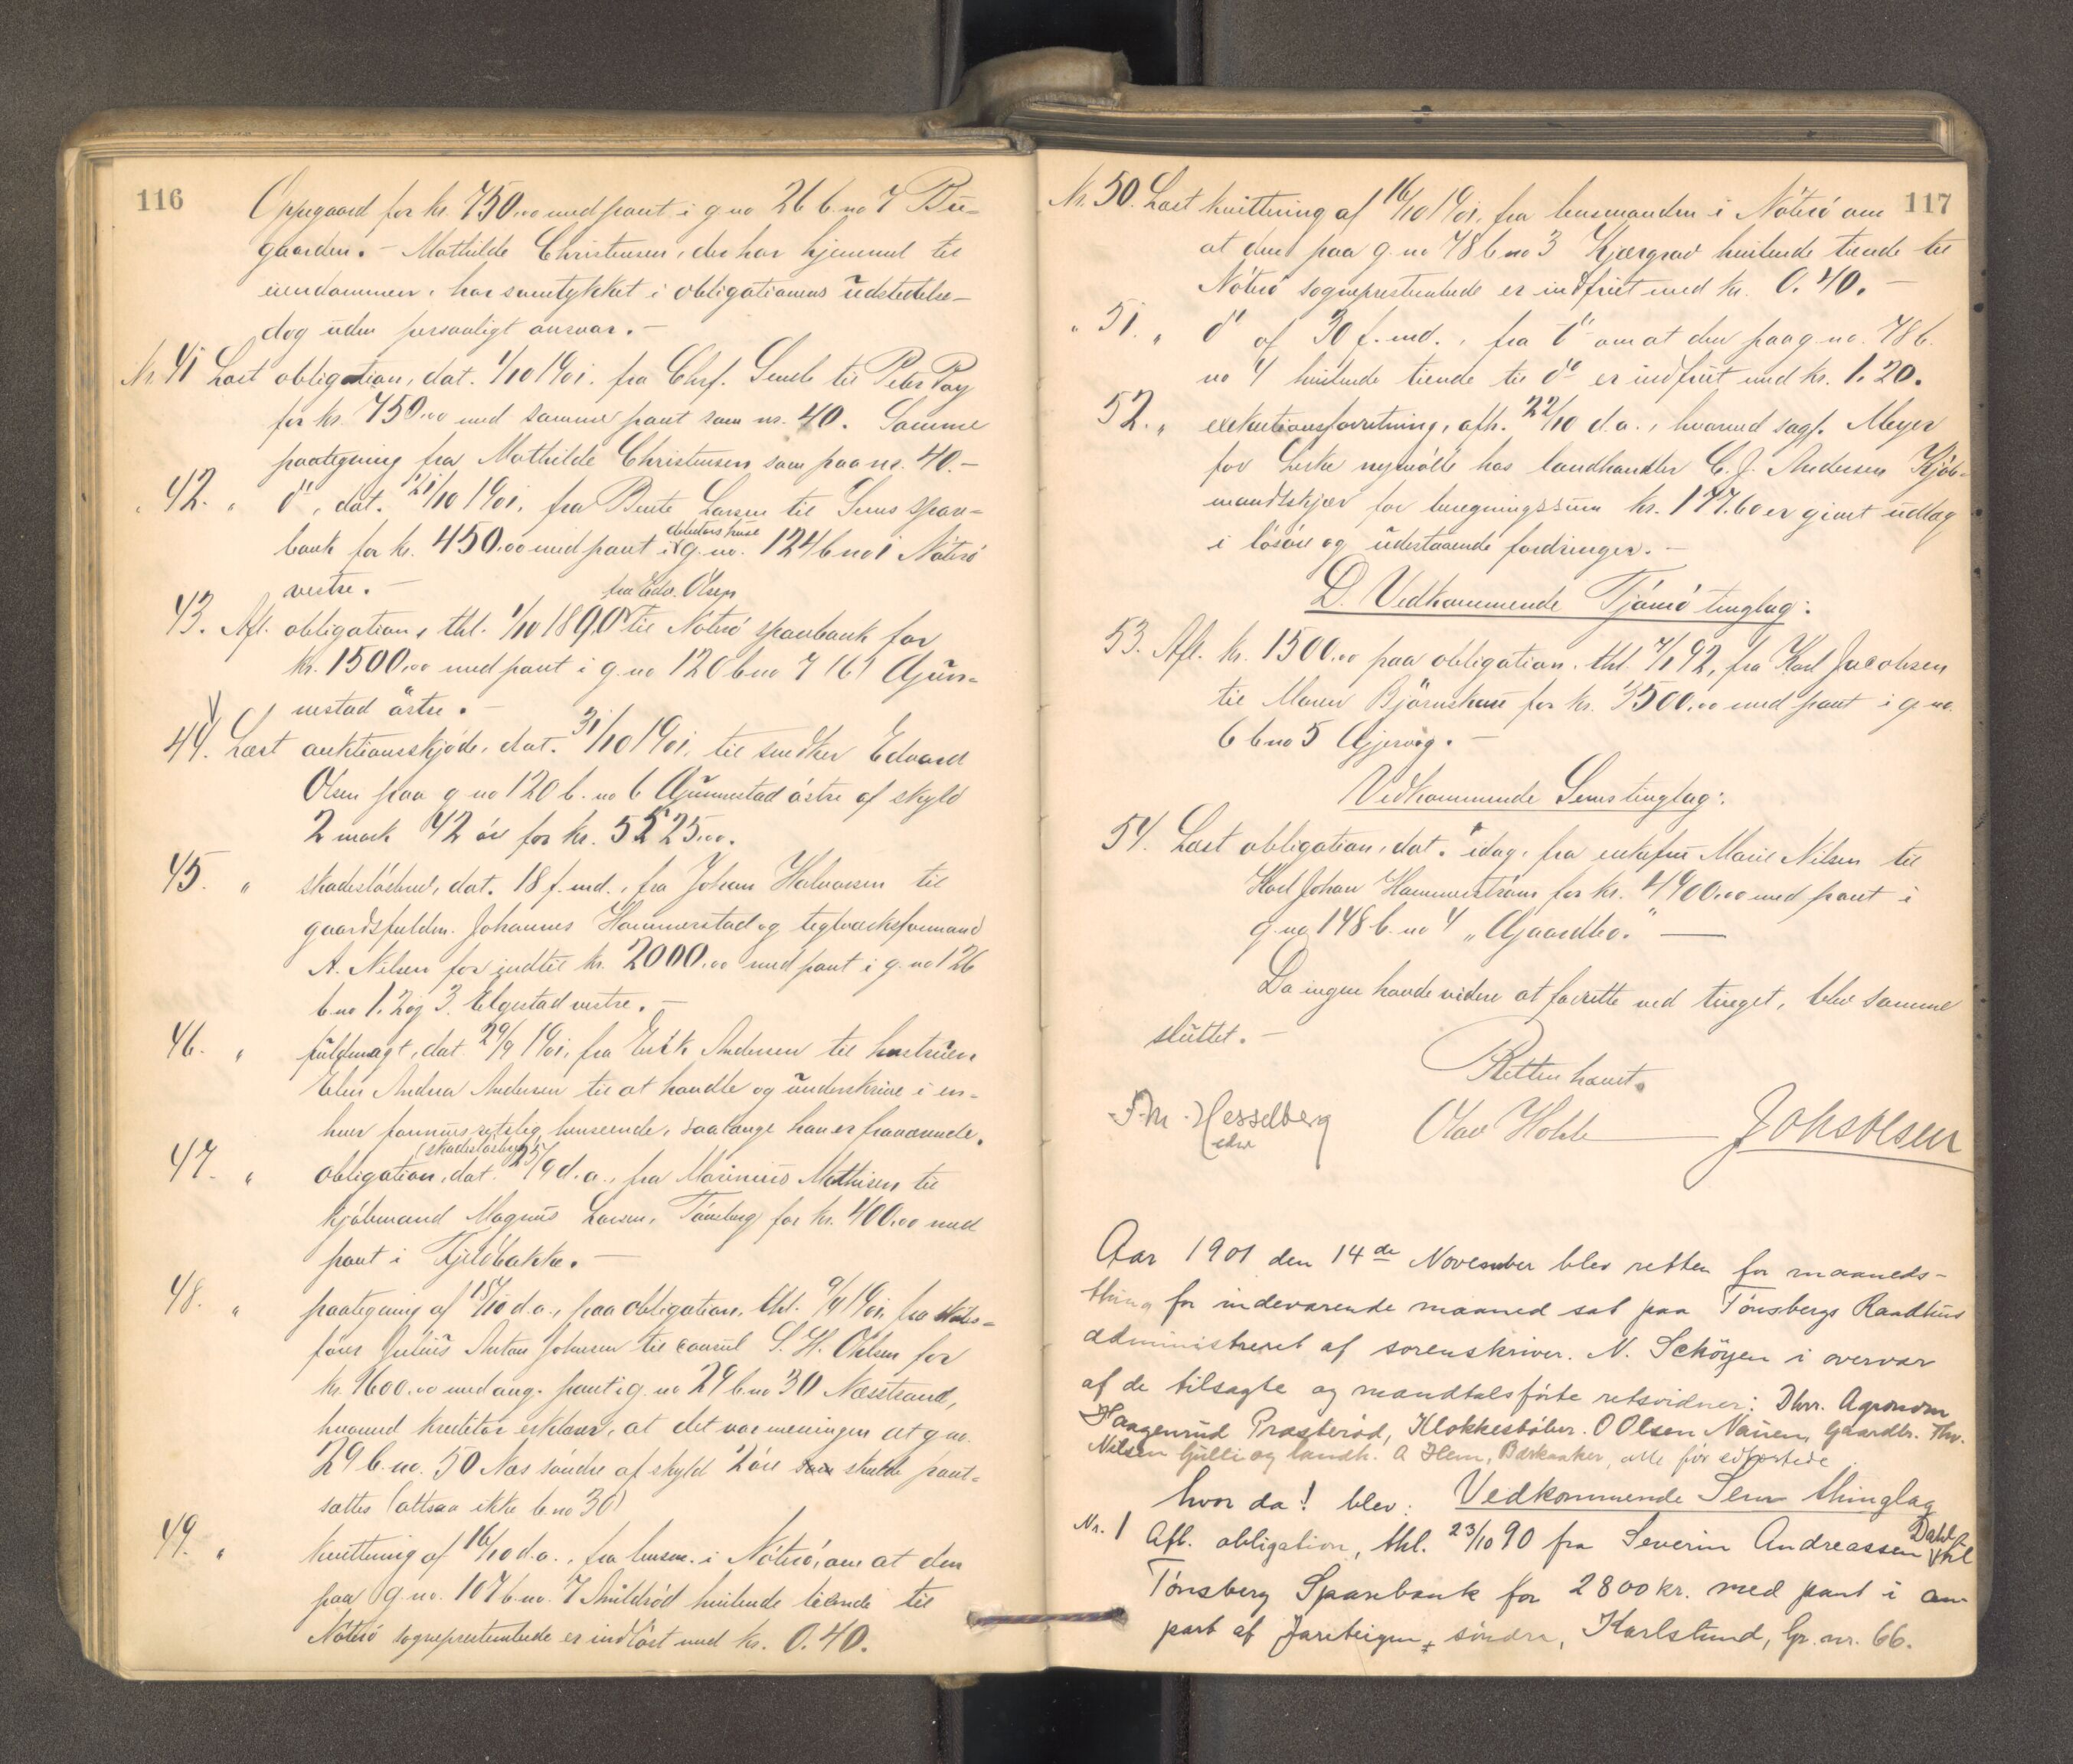 116
Oppegaard for kr. 750.00 med pant i g.no 26 b.no 7 Bu-
gaarden. - Mathilde Christensen, der har hjemmel til
eiendommen, har samtykket i obligationens udstedelse -
dog uden personligt ansvar. -
Nr. 41 Læst obligation, dat. 1/10 1901. fra Chrf. Sende til Peter Pay
for kr. 750.00 med samme pant som nr. 40. Samme
paategning fra Mathilde Christensen som paa nr. 40. -
42. " do, dat. 21/10 1901, fra Bente Larsen til Sems spare-
bank for kr. 450.00 med pant i debitors huse g.no. 124 b.no 1 Nøterø
vestre. -
43. Afl. obligation, thl. 1/10 1890 fra Edv. Olsen til Nøterø sparebank for
kr. 1500.00 med pant i g.no 120 b.no 7 (6) Gjun-
nestad østre. -
44. Læst auktionsskjøde, dat. 31/10 1901, til snedker Edvard
Olsen paa g.no 120 b.no 6 Gjunnestad østre af skyld
2 mark 42 øre for kr. 5525.00.
45. " skadesløsbrev, dat. 18 f.md., fra Johan Halvorsen til
gaardsfuldm. Johannes Hammerstad og teglverksformand
A. Nilsen for indtil kr. 2000.00 med pant i g.no 126
b.no 1. 2 og 3. Elgestad vestre. -
46. " fuldmagt, dat. 29/9 1901, fra Erik Andersen til hustruen
Elen Andrea Andersen til at handle og underskrive i en-
hver formuesretslig henseende, saalænge han er fraværende.
47. " obligation (skadesløsbrev), dat. 25/9 d.a., fra Marinius Mathisen til
kjøbmand Magnus Larsen, Tønsberg for kr. 400.00 med
pant i Fjeldbakke. -
48. " paategning af 15/10 d.a., paa obligation, thl. 9/9 1901, fra skibs-
fører Julius Anton Johnsen til consul S. H. Olsen for
kr. 9600.00 med ang. pant i g.no 29 b.no 30 Næsstrand,
hvorved kreditor erklærer, at det var meningen at g.no.
29 b.no. 50 Næs søndre af skyld 2 øre skulde pant-
sættes (altsaa ikke b.no 30)
49. " kvittering af 16/10 d.a., fra lensm. i Nøterø, om at den
paa g.no. 107 b.no. 7 Smidsrød hvilende tiende til
Nøterø sogneprestembede er indløst med kr. 0.40.
117
Nr. 50. Læst kvittering af 16/10 1901, fra lensmanden i Nøterø om
at den paa g.no 78 b.no 3 Kjærgrav hvilende tiende til
Nøterø sogneprestembede er indfriet med kr. 0.40. -
" 51. " do af 30 f.md., fra do om at den paa g.no. 78 b.
no 4 hvilende tiende til do er indfriet med kr. 1.20.
52. " exekutionsforretning, afh. 22/10 d.a., hvorved sagf. Meyer
for Liske nymølle hos landhandler C. J. Andersen Kjøb-
mandskjær for beregningssum kr. 177.60 er givet udlæg
i løsøre og udestaaende fordringer. -
D. Vedkommende Tjømø tinglag:
53. Afl. kr. 1500.00 paa obligation, thl. 7/1 92, fra Karl Jacobsen
til Maren Bjørnskau for kr. 3500.00 med pant i g.no.
6 b.no 5 Gjervaag. -
Vedkommende Sems tinglag:
54. Læst obligation, dat. idag, fra enkefru Marie Nilsen til
Karl Johan Hammerstrøm for kr. 4400.00 med pant i
g.no 148 b.no 4 „Gjaardbo." -
Da ingen havde videre at forrette ved tinget, blev samme
sluttet. -
Retten hævet.
F.M. Hesselberg
edsv
Olav Holst
Johs Olsen
Aar 1901 den 14de November blev retten for maaneds-
thing for indeværende maaned sat paa Tønsbergs Raadhus
administreret af sorenskriver. N. Schöyen i overvær
af de tilsagte og mandtalsførte retsvidner: Dhrr. Agronom
Haagenrud Præsterød, Klokkestøber. O Olsen Nauen, Gaardbr. Thv.
Nilsen Gulli og landh. A Hem, Barkaaker, alle før edfæstede.
hvor da! blev: Vedkommende Sem thinglag
Nr. 1 Afl. obligation, thl. 23/10 90 fra Severin Andreassen Dahl til
Tönsberg Sparebank for 2800 kr. med pant i an-
part af Jareteigen, søndre, Karlslund, Gr. nr. 66.